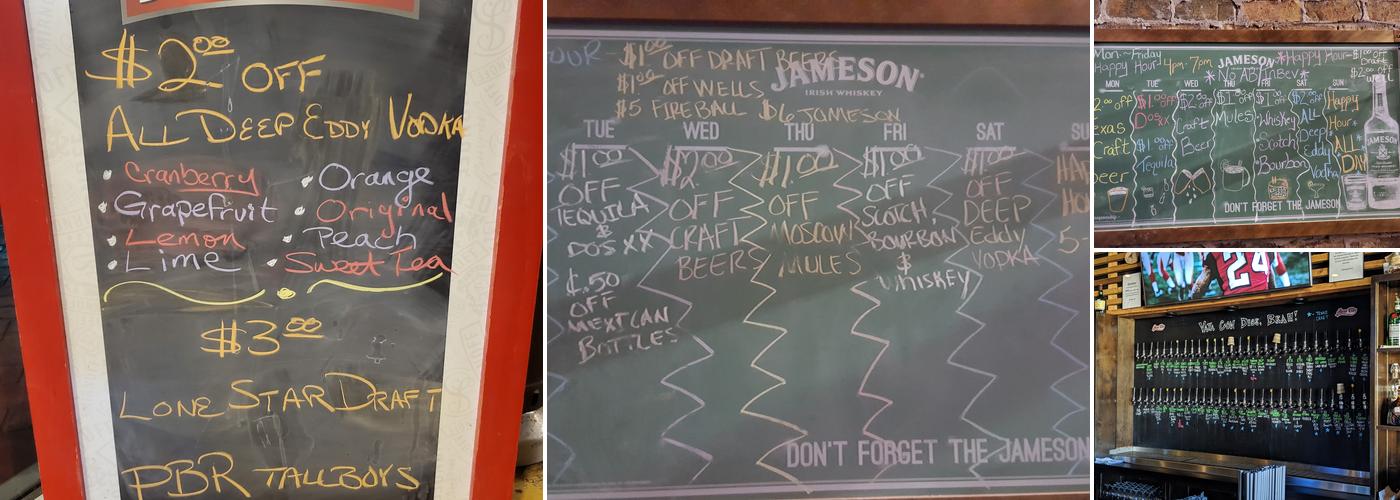 $2.00 OFF
ALL DEEP EDDY VODKA
Cranberry
Grapefruit
Lemon
Lime
Orange
Original
Peach
Sweet Tea
$3.00
LONE STAR DRAFT
PBR TALLBOYS
OUR - $1.00 OFF DRAFT BEERS
$1.00 OFF WELLS
$5 FIREBALL $6 JOMIESON
JAMESON
IRISH WHISKEY
TUE
$1.00
OFF
TEQUILA
&
DOS XX
¢.50
OFF
MEXICAN
BOTTLES
WED
$2.00
OFF
CRAFT
BEERS
THU
$1.00
OFF
MOSCOW
MULES
FRI
$1.00
OFF
SCOTCH,
BOURBON
&
WHISKEY
SAT
$1.00
OFF
DEEP
Eddy
VODKA
SU
HAP
HO
5-
DON'T FORGET THE JAMESON
Mon.-Friday
Happy Hour 4pm-7pm
JAMESON
*Happy Hour-$1.00 off
Draft
$2.00 off
*No AB InBev*
MON
2.00 off
exas
Craft
beer
TUE
$1.00 off
Dos xx
$1.00 off
Tequila
WED
$2.00 off
Craft
Beer
THU
$1.00 off
Mules
FRI
$1.00 off
Whiskey
Scotch
Bourbon
SAT
$2.00 off
ALL
Deep
Eddy
Vodka
SUN
Happy
Hour
ALL
DAY
JAMESON
DON'T FORGET THE JAMESON
24
VAYA CON DIOS, BEAH!